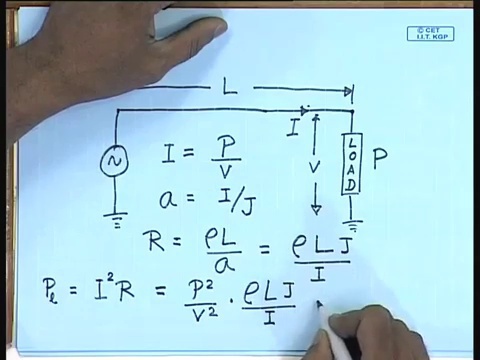 © CET
I.I.T. KGP
L
I
V
LOAD
P
~
I = P/V
a = I/J
R = ρL/a = ρLJ/I
Pℓ = I²R = P²/V² · ρLJ/I